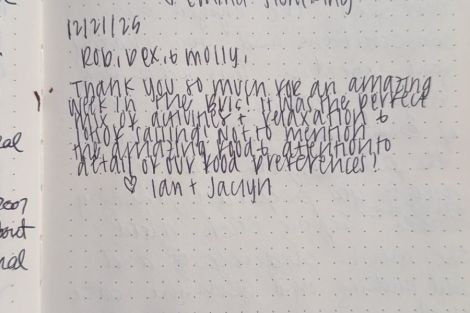 12/21/25
Rob, Dex, & Molly,
Thank you so much for an amazing
week in the BVIs! It was the perfect
mix of activities + relaxation &
sailing. Not to mention
the amazing food & attention to
detail for our food preferences!
♡ Ian + Jaclyn
2007
bout